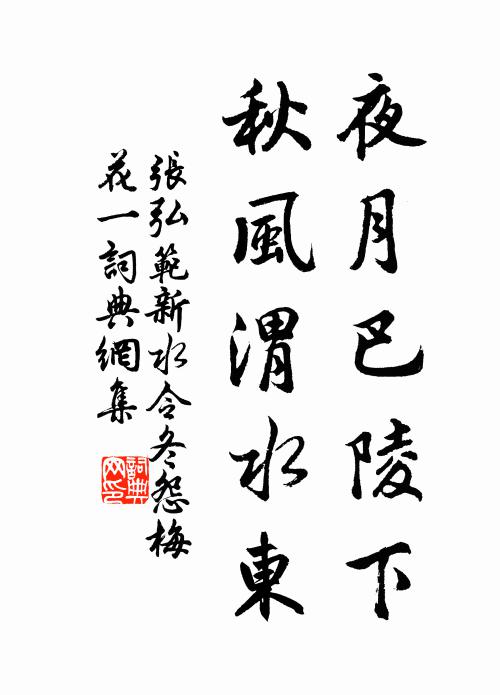 夜月巴陵下
秋風渭水東
張弘範新水令冬怨梅
花一詞典網集
詞典
网印